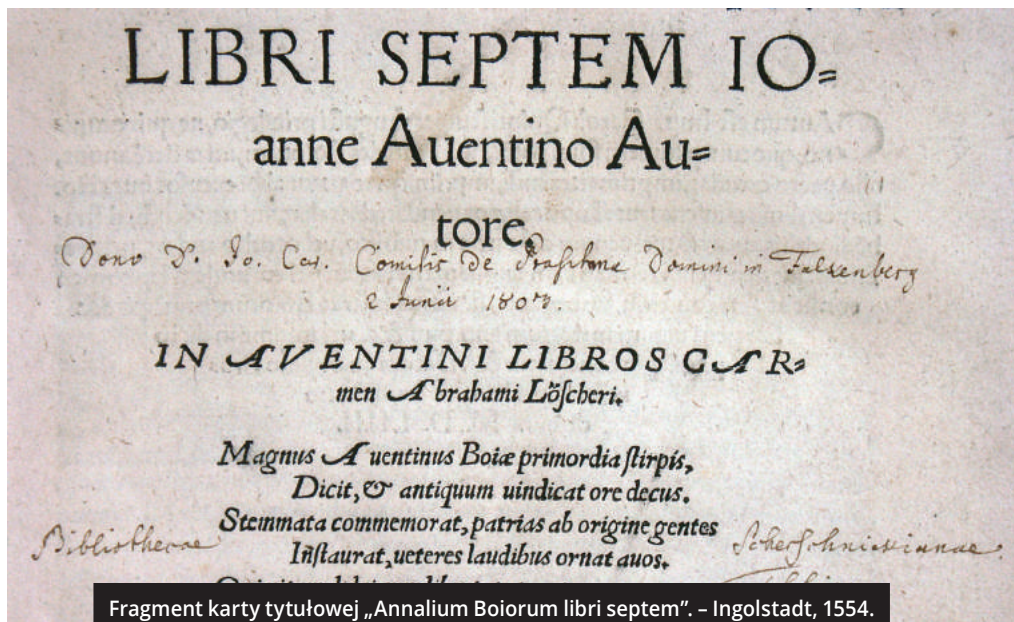 LIBRI SEPTEM IO=
anne Auentino Au=
tore.
Dono D. Io. Cas. Comitis De Praschma Domini in Falkenberg
2 Junii 1807.
IN AVENTINI LIBROS CAR=
men Abrahami Löscheri.
Magnus Auentinus Boiæ primordia stirpis,
Dicit, & antiquum uindicat ore decus.
Stemmata commemorat, patrias ab origine gentes
Instaurat, ueteres laudibus ornat auos.
Bibliothecae Scherschnickianae
Fragment karty tytułowej „Annalium Boiorum libri septem”. – Ingolstadt, 1554.